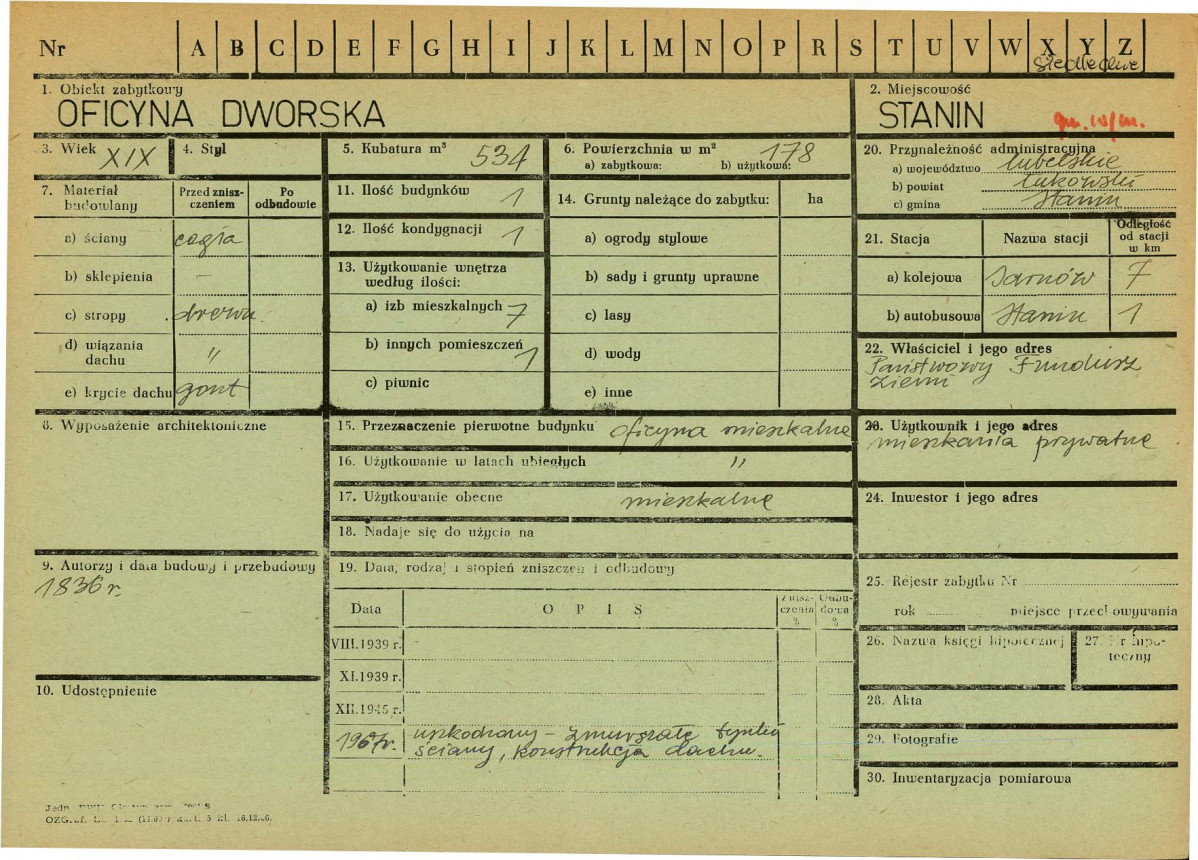 Nr A B C D E F G H I J K L M N O P R S T U V W X Y Z
1. Obiekt zabytkowy
OFICYNA DWORSKA
2. Miejscowość
STANIN
gm. w/m.
3. Wiek XIX
4. Styl
5. Kubatura m³ 534
6. Powierzchnia w m² 178
a) zabytkowa: b) użytkowa:
20. Przynależność administracyjna
a) województwo lubelskie
b) powiat łukowski
c) gmina Stanin
7. Materiał budowlany
Przed zniszczeniem
Po odbudowie
a) ściany cegła
b) sklepienia –
c) stropy drewn.
d) wiązania dachu "
e) krycie dachu gont
11. Ilość budynków 1
12. Ilość kondygnacji 1
13. Użytkowanie wnętrza według ilości:
a) izb mieszkalnych 7
b) innych pomieszczeń 1
c) piwnic
14. Grunty należące do zabytku: ha
a) ogrody stylowe
b) sady i grunty uprawne
c) lasy
d) wody
e) inne
21. Stacja Nazwa stacji Odległość od stacji w km
a) kolejowa Sarnów 7
b) autobusowa Stanin 1
22. Właściciel i jego adres
Państwowy Fundusz
Ziemi
8. Wyposażenie architektoniczne
15. Przeznaczenie pierwotne budynku oficyna mieszkalna
16. Użytkowanie w latach ubiegłych "
17. Użytkowanie obecne mieszkalne
18. Nadaje się do użycia na
Użytkownik i jego adres
mieszkania prywatne
24. Inwestor i jego adres
9. Autorzy i data budowy i przebudowy
1836 r.
10. Udostępnienie
19. Data, rodzaj i stopień zniszczeń i odbudowy
Data OPIS Zniszczenia % Odbudowa %
VIII.1939 r.
XI.1939 r.
XII.1945 r.
1967r. uszkodzony – zmurszałe tynki
ściany, konstrukcja dachu.
25. Rejestr zabytku Nr
rok miejsce przechowywania
26. Nazwa księgi hipotecznej
27. Nr hipoteczny
28. Akta
29. Fotografie
30. Inwentaryzacja pomiarowa